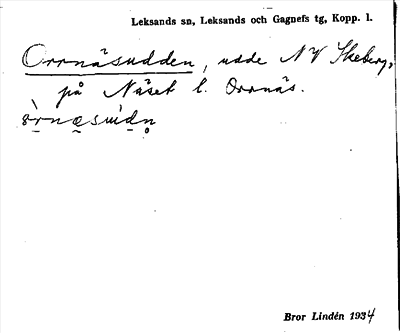 Leksands sn, Leksands och Gagnefs tg, Kopp. l.
Orrnäsudden, udde NV Skeberg,
på Näset l. Orrnäs.
Bror Lindén 1934